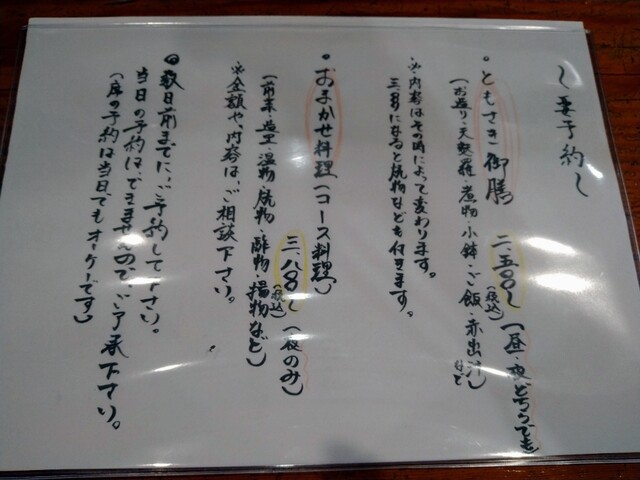 〜要予約〜
・ともさき御膳 二、五〇〇〜(税込)(昼・夜どちらでも)
(お造り・天婦羅・煮物・小鉢・ご飯・赤出汁)など
※内容はその時によって変わります。
三、〇〇〇になると焼物なども付きます。
・おまかせ料理(コース料理) 三、八〇〇〜(税込)(夜のみ)
(前菜・造里・温物・焼物・酢物・揚物など)
※金額や、内容は、ご相談下さい。
◎数日前までに、ご予約して下さい。
当日の予約は、できませんので、ご了承下さい。
(席の予約は当日でもオーケーです)